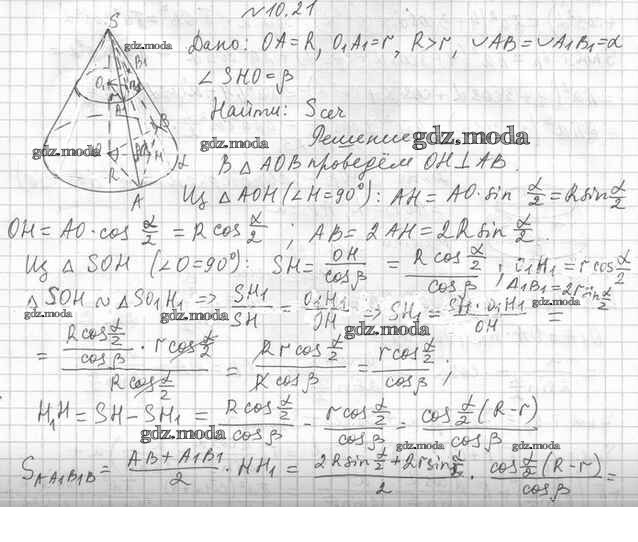 №10.21
S
gdz.moda
Дано: OA=R, O₁A₁=r, R>r, ∪AB=∪A₁B₁=α
∠SHO=β
Найти: Sсеч
Решение
gdz.moda
gdz.moda
gdz.moda
В △AOB проведём OH⊥AB.
Из △AOH (∠H=90°): AH=AO·sin α/2=R sin α/2
OH=AO·cos α/2 = R cos α/2 ; AB=2AH=2R sin α/2.
Из △SOH (∠O=90°): SH=OH/cos β = R cos α/2 / cos β ; O₁H₁=r cos α/2
A₁B₁=2r sin α/2
△SOH ∾ △SO₁H₁ => SH₁/SH = O₁H₁/OH => SH₁= SH·O₁H₁/OH =
gdz.moda
gdz.moda
gdz.moda
gdz.moda
= R cos α/2 / cos β · r cos α/2 / R cos α/2 = R r cos α/2 / R cos β = r cos α/2 / cos β ;
H₁H=SH-SH₁ = R cos α/2 / cos β - r cos α/2 / cos β = cos α/2 (R-r) / cos β
gdz.moda
gdz.moda
gdz.moda
S AA₁B₁B = AB+A₁B₁ / 2 · HH₁ = 2R sin α/2 + 2r sin α/2 / 2 · cos α/2 (R-r) / cos β =